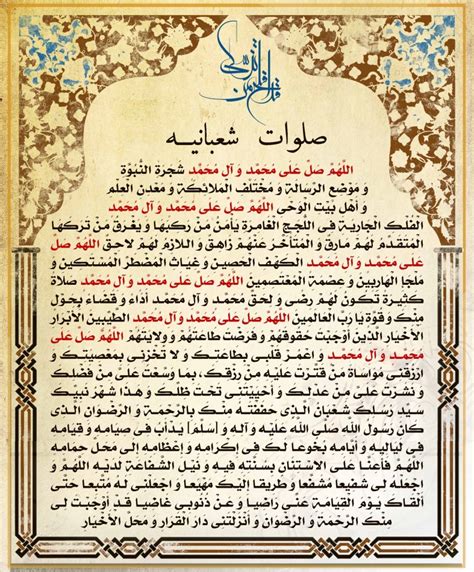 قد أفلح من تزکی
صلوات شعبانیه
اللّهُمَّ صَلِّ عَلى مُحَمَّد وَ آلِ مُحَمَّد شَجَرَةِ النُّبُوَّةِ
وَ مَوْضِعِ الرِّسالَةِ وَ مُخْتَلَفِ الْمَلائِكَةِ وَ مَعْدِنِ الْعِلْمِ
وَ أَهْلِ بَيْتِ الْوَحْىِ اللّهُمَّ صَلِّ عَلى مُحَمَّد وَ آلِ مُحَمَّد
الْفُلْكِ الْجارِيَةِ فِى اللُّجَجِ الْغامِرَةِ يَأْمَنُ مَنْ رَكِبَها وَ يَغْرَقُ مَنْ تَرَكَهَا
الْمُتَقَدِّمُ لَهُمْ مارِقٌ وَ الْمُتَأَخِّرُ عَنْهُمْ زاهِقٌ وَ اللاّزِمُ لَهُمْ لاحِقٌ اللّهُمَّ صَلِّ
عَلى مُحَمَّد وَ آلِ مُحَمَّد الْكَهْفِ الْحَصينِ وَ غِياثِ الْمُضْطَرِّ الْمُسْتَكينِ وَ
مَلْجَإِ الْهارِبينَ وَ عِصْمَةِ الْمُعْتَصِمينَ اللّهُمَّ صَلِّ عَلى مُحَمَّد وَ آلِ مُحَمَّد صَلاةً
كَثيرَةً تَكُونُ لَهُمْ رِضى وَ لِحَقِّ مُحَمَّد وَ آلِ مُحَمَّد أَداءً وَ قَضاءً بِحَوْل
مِنْكَ وَ قُوَّة يا رَبَّ الْعالَمينَ اللّهُمَّ صَلِّ عَلى مُحَمَّد وَ آلِ مُحَمَّد الطَّيِّبينَ الْأَبْرارِ
الْأَخْيارِ الَّذينَ أَوْجَبْتَ حُقُوقَهُمْ وَ فَرَضْتَ طاعَتَهُمْ وَ وِلايَتَهُمْ اللّهُمَّ صَلِّ عَلى
مُحَمَّد وَ آلِ مُحَمَّد وَ اعْمُرْ قَلْبى بِطاعَتِكَ وَ لا تُخْزِنى بِمَعْصِيَتِكَ وَ
ارْزُقْنى مُواساةَ مَنْ قَتَّرْتَ عَلَيْهِ مِنْ رِزْقِكَ، بِما وَسَّعْتَ عَلَىَّ مِنْ فَضْلِكَ
وَ نَشَرْتَ عَلَىَّ مِنْ عَدْلِكَ وَ أَحْيَيْتَنى تَحْتَ ظِلِّكَ وَ هذا شَهْرُ نَبِيِّكَ
سَيِّدِ رُسُلِكَ شَعْبانُ الَّذى حَفَفْتَهُ مِنْكَ بِالرَّحْمَةِ وَ الرِّضْوانِ الَّذى
كانَ رَسُولُ اللّهِ صَلَّى اللّهُ عَلَيْهِ وَ آلِهِ و [سَلَّمَ] يَدْأَبُ فى صِيامِهِ وَ قِيامِهِ
فى لَياليهِ وَ أَيّامِهِ بُخُوعاً لَكَ فى اِكْرامِهِ وَ اِعْظامِهِ إِلى مَحَلِّ حِمامِهِ
اللّهُمَّ فَأَعِنّا عَلَى الاسْتِنانِ بِسُنَّتِهِ فيهِ وَ نَيْلِ الشَّفاعَةِ لَدَيْهِ اللّهُمَّ وَ
اجْعَلْهُ لى شَفيعاً مُشَفَّعاً وَ طَريقاً إِلَيْكَ مَهْيَعاً وَ اجْعَلْنى لَهُ مُتَّبِعاً حَتّى
أَلْقاكَ يَوْمَ الْقِيامَةِ عَنّى راضِياً وَ عَنْ ذُنُوبى غاضِياً قَدْ أَوْجَبْتَ لى
مِنْكَ الرَّحْمَةَ وَ الرِّضْوانَ وَ أَنْزَلْتَنى دارَ الْقَرارِ وَ مَحَلَّ الْأَخْيارِ